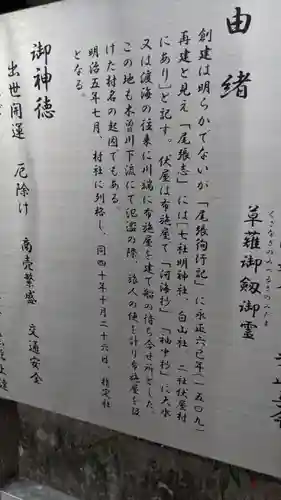 くさなぎのみつるぎのみたま
草薙御劔御霊
由緒
創建は明らかでないが「尾張徇行記」に永正六己年(一五〇九)
再建と見え「尾張志」には「七社明神社、白山社、二社伏屋村
にあり」と記す。伏屋は布施屋で「河海抄」「袖中抄」に大水
又は渡海の往来に川端に布施屋を建て船の待ち合せ所とした。
この地も木曽川下流にて氾濫の際、旅人の便を計り布施屋を設
けた村名の起因でもある。
明治五年七月、村社に列格し、同四十年十月二十六日、指定社
となる。
御神徳
出世開運 厄除け 商売繁盛 交通安全